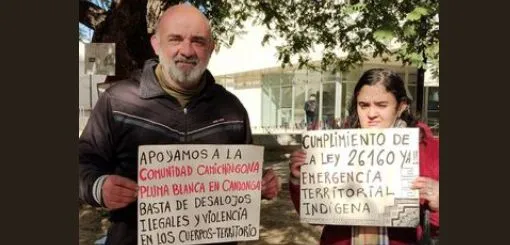 APOYAMOS A LA
COMUNIDAD CAMICHINGONA
PLUMA BLANCA EN CANDONGA
BASTA DE DESALOJOS
ILEGALES Y VIOLENCIA
EN LOS CUERPOS-TERRITORIO
CUMPLIMIENTO DE
LA LEY 26160 YA!!
EMERGENCIA
TERRITORIAL
INDÍGENA